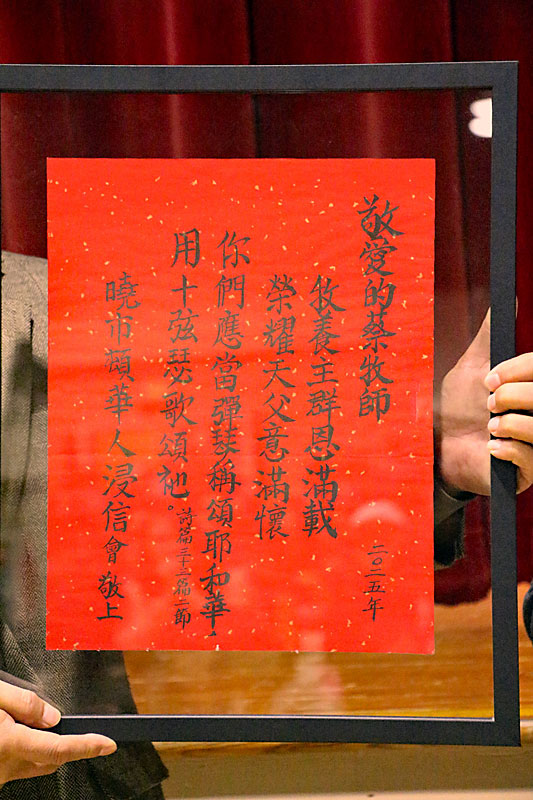 敬愛的蔡牧師
二〇二五年
牧養主群恩滿載
榮耀天父意滿懷
你們應當彈琴稱頌耶和華，
用十弦瑟歌頌祂。詩篇三十三篇二節
曉市頓華人浸信會 敬上